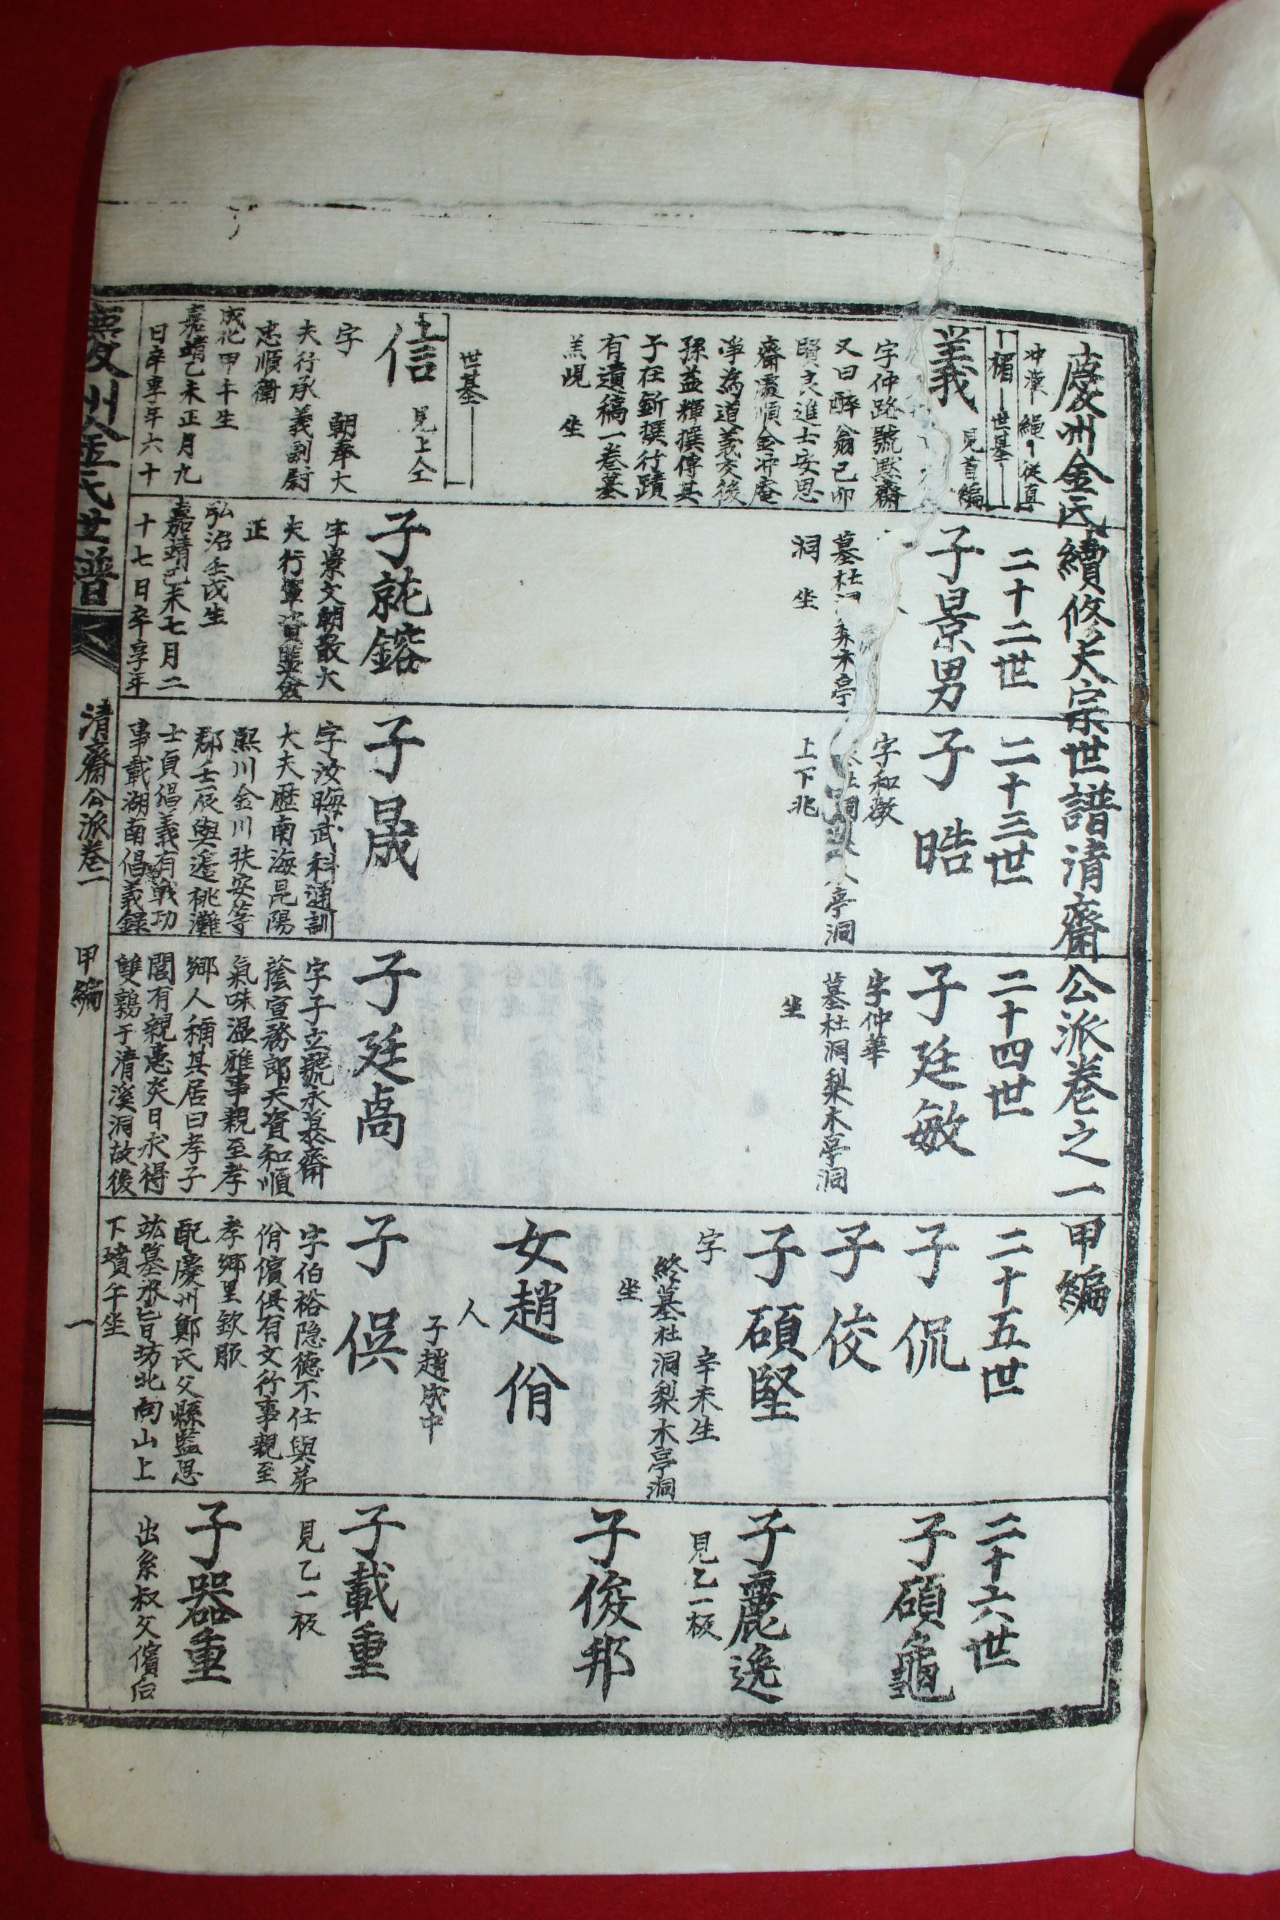 慶州金氏續修大宗世譜清齋公派卷之一 甲編
冲漢 繩 從真
楣 世基
義 見首編
字仲路號默齋
又曰醉翁己卯
賢良進士安思
齋處順金冲庵
淨為道義交後
孫益輝撰傳其
子在新撰行蹟
有遺稿一卷墓
羔峴 坐
世基
信 見上仝
字 朝奉大
夫行承義副尉
忠順衛
成化甲午生
嘉靖乙未正月九
日卒享年六十
二十二世
子景男
墓杜洞梨木亭
洞 坐
子就鎔
字景文朝散大
夫行軍資監僉
正
弘治壬戌生
嘉靖己未七月二
十七日卒享年
二十三世
子晧
字和敬
亭洞
上下兆
子晟
字汝晦武科通訓
大夫歷南海昆陽
熙川金川扶安等
郡壬辰與邊桃灘
士貞倡義有戰功
事載湖南倡義錄
二十四世
子廷敏
字仲華
墓杜洞梨木亭洞
坐
子廷卨
字子立號永慕齋
蔭宣務郎天資和順
氣味溫雅事親至孝
鄉人稱其居曰孝子
閭有親患炎日求得
雙鶉于清溪洞故後
二十五世
子侃
子佼
子碩堅
字 辛未生
終墓杜洞梨木亭洞
坐
女趙佾
人
子趙成中
子俁
字伯裕隱德不仕與弟
佾儐俱有文行事親至
孝鄉里欽服
配慶州鄭氏父縣監思
竑墓丞旨坊北向山上
下墳午坐
二十六世
子碩龜
子麗逸
見乙一板
子俊邦
子載重
見乙一板
子器重
出系叔父儐后
慶州金氏世譜
清齋公派卷一 甲編 一